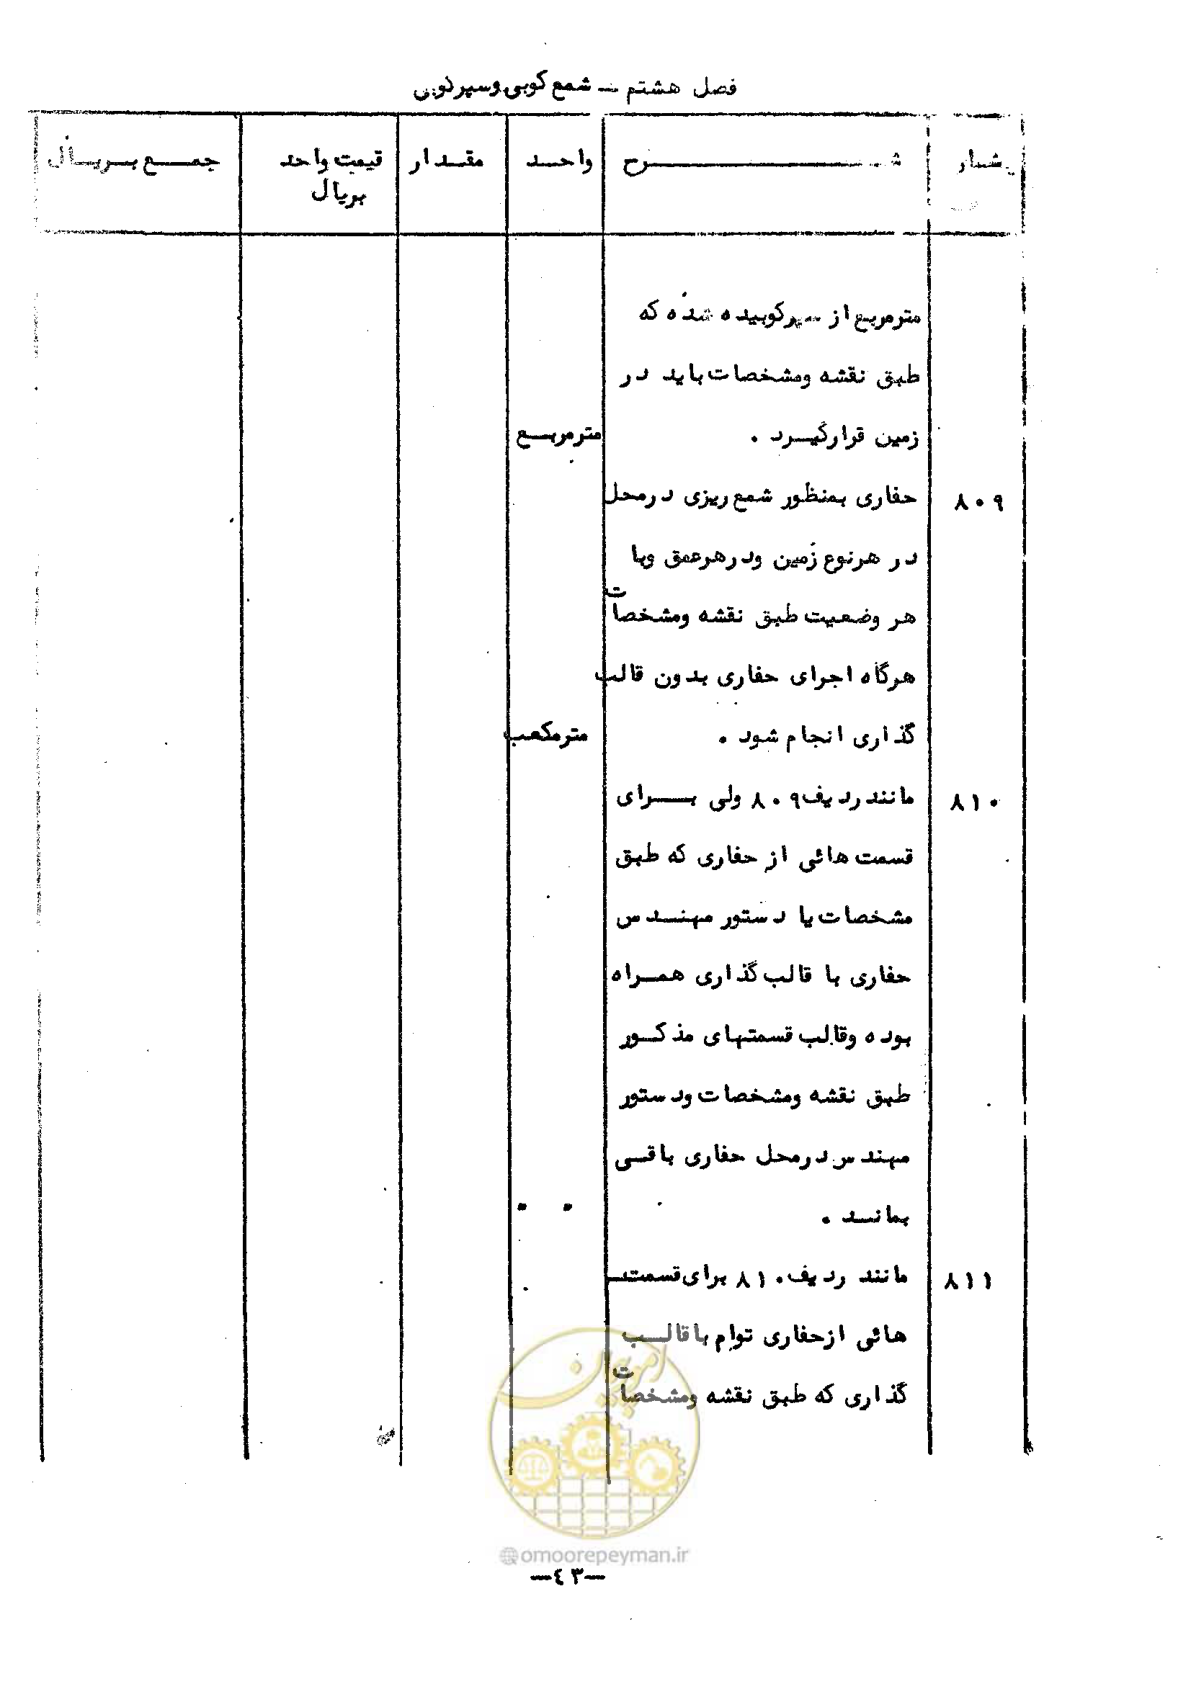 فصل هشتم — شمع کوبی و سپر کوبی
شمار شرح واحد مقدار قیمت واحد جمع بریال
بریال
مترمربع از سپرکوبیده شده که
طبق نقشه ومشخصات باید در
زمین قرارگیرد . مترمربع
۸۰۹ حفاری بمنظور شمع ریزی درمحل
در هرنوع زمین ودرهرعمق وبا
هر وضعیت طبق نقشه ومشخصات
هرگاه اجرای حفاری بدون قالب
گذاری انجام شود . مترمکعب
۸۱۰ مانند ردیف ۸۰۹ ولی برای
قسمت هائی از حفاری که طبق
مشخصات یا دستور مهندس
حفاری با قالب گذاری همراه
بوده وقالب قسمتهای مذکور
طبق نقشه ومشخصات ودستور
مهندس درمحل حفاری باقی
بماند . " "
۸۱۱ مانند ردیف ۸۱۰ برای قسمت
هائی ازحفاری توام با قالب
گذاری که طبق نقشه ومشخصات
امور پیمان
@omoorepeyman.ir
—٤٣—